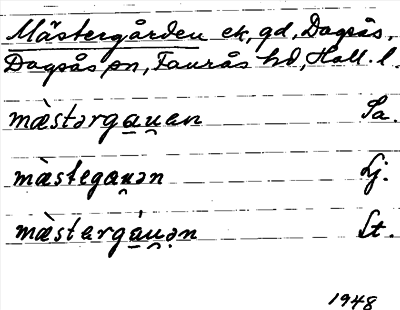 Mästergården ek, gd, Dagsås,
Dagsås sn, Faurås hd, Hall. l.
mæ̀stərga̲u̯en Sa.
mæ̀stega̲u̯ən Lj.
mæ̀stergá̲u̯ən St.
1948